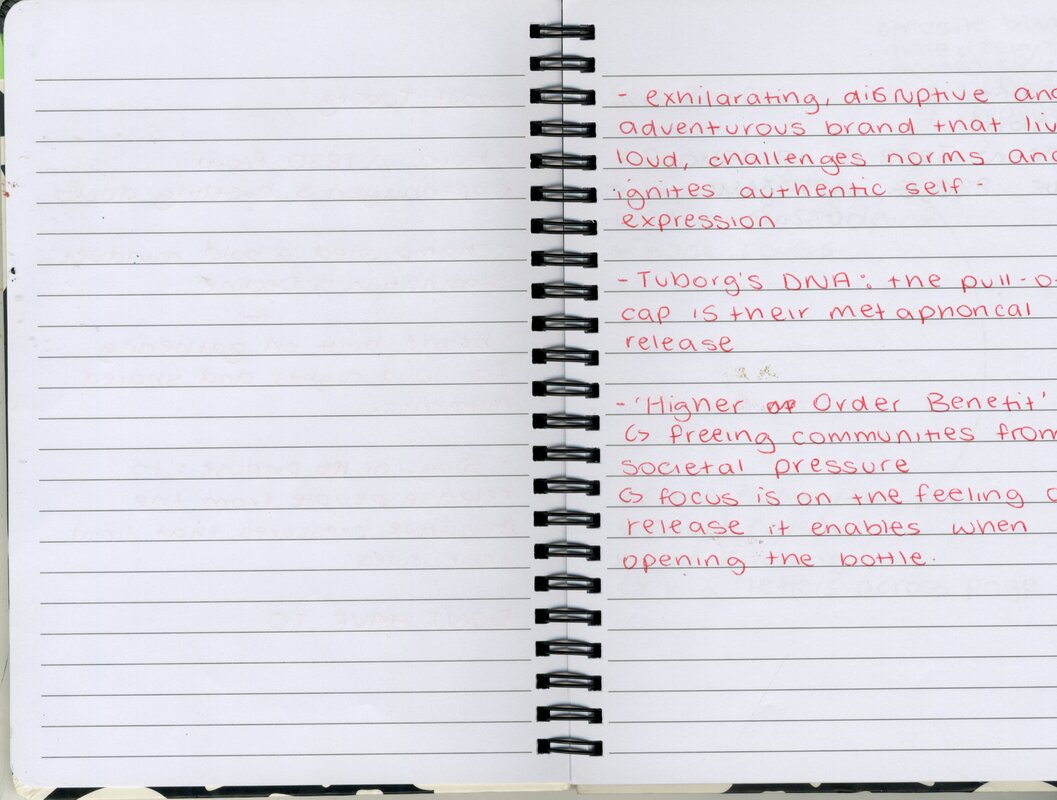 - exhilarating, disruptive and
adventurous brand that liv
loud, challenges norms and
ignites authentic self-
expression
- Tuborg's DNA: the pull-o
cap is their metaphorical
release
- 'Higher Order Benefit'
↳ freeing communities from
societal pressure
↳ focus is on the feeling o
release it enables when
opening the bottle.